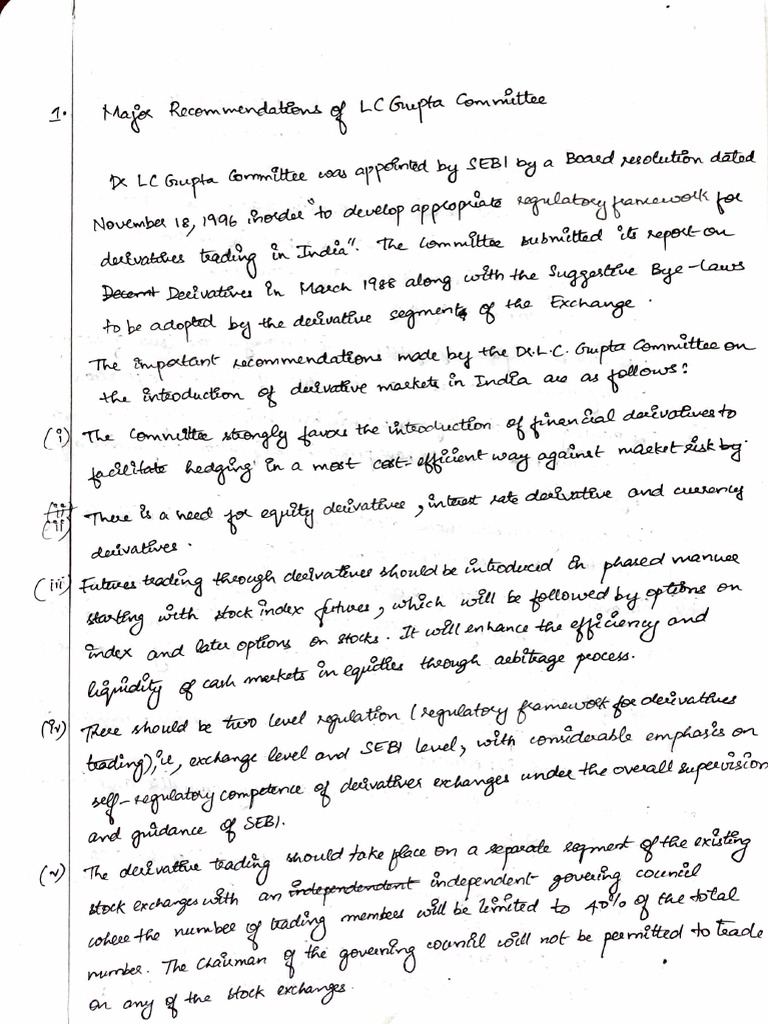 1. Major Recommendations of LC Gupta Committee
Dr LC Gupta Committee was appointed by SEBI by a Board resolution dated
November 18, 1996 inorder "to develop appropriate regulatory framework for
derivatives trading in India". The Committee submitted its report on
Derivatives in March 1988 along with the Suggestive Bye-laws
to be adopted by the derivative segment of the Exchange.
The important recommendations made by the Dr. L.C. Gupta Committee on
the introduction of derivative markets in India are as follows:
(i) The Committee strongly favours the introduction of financial derivatives to
facilitate hedging in a most cost-efficient way against market risk
(ii) There is a need for equity derivatives, interest rate derivative and currency
derivatives.
(iii) Futures trading through derivatives should be introduced in phased manner
starting with stock index futures, which will be followed by options on
index and later options on stocks. It will enhance the efficiency and
liquidity of cash markets in equities through arbitrage process.
(iv) There should be two level regulation (regulatory framework for derivatives
trading), i.e, exchange level and SEBI level, with considerable emphasis on
self-regulatory competence of derivatives exchanges under the overall supervision
and guidance of SEBI.
(v) The derivative trading should take place on a separate segment of the existing
stock exchanges with an independent govering council
where the number of trading members will be limited to 40% of the total
number. The Chairman of the governing council will not be permitted to trade
on any of the stock exchanges.